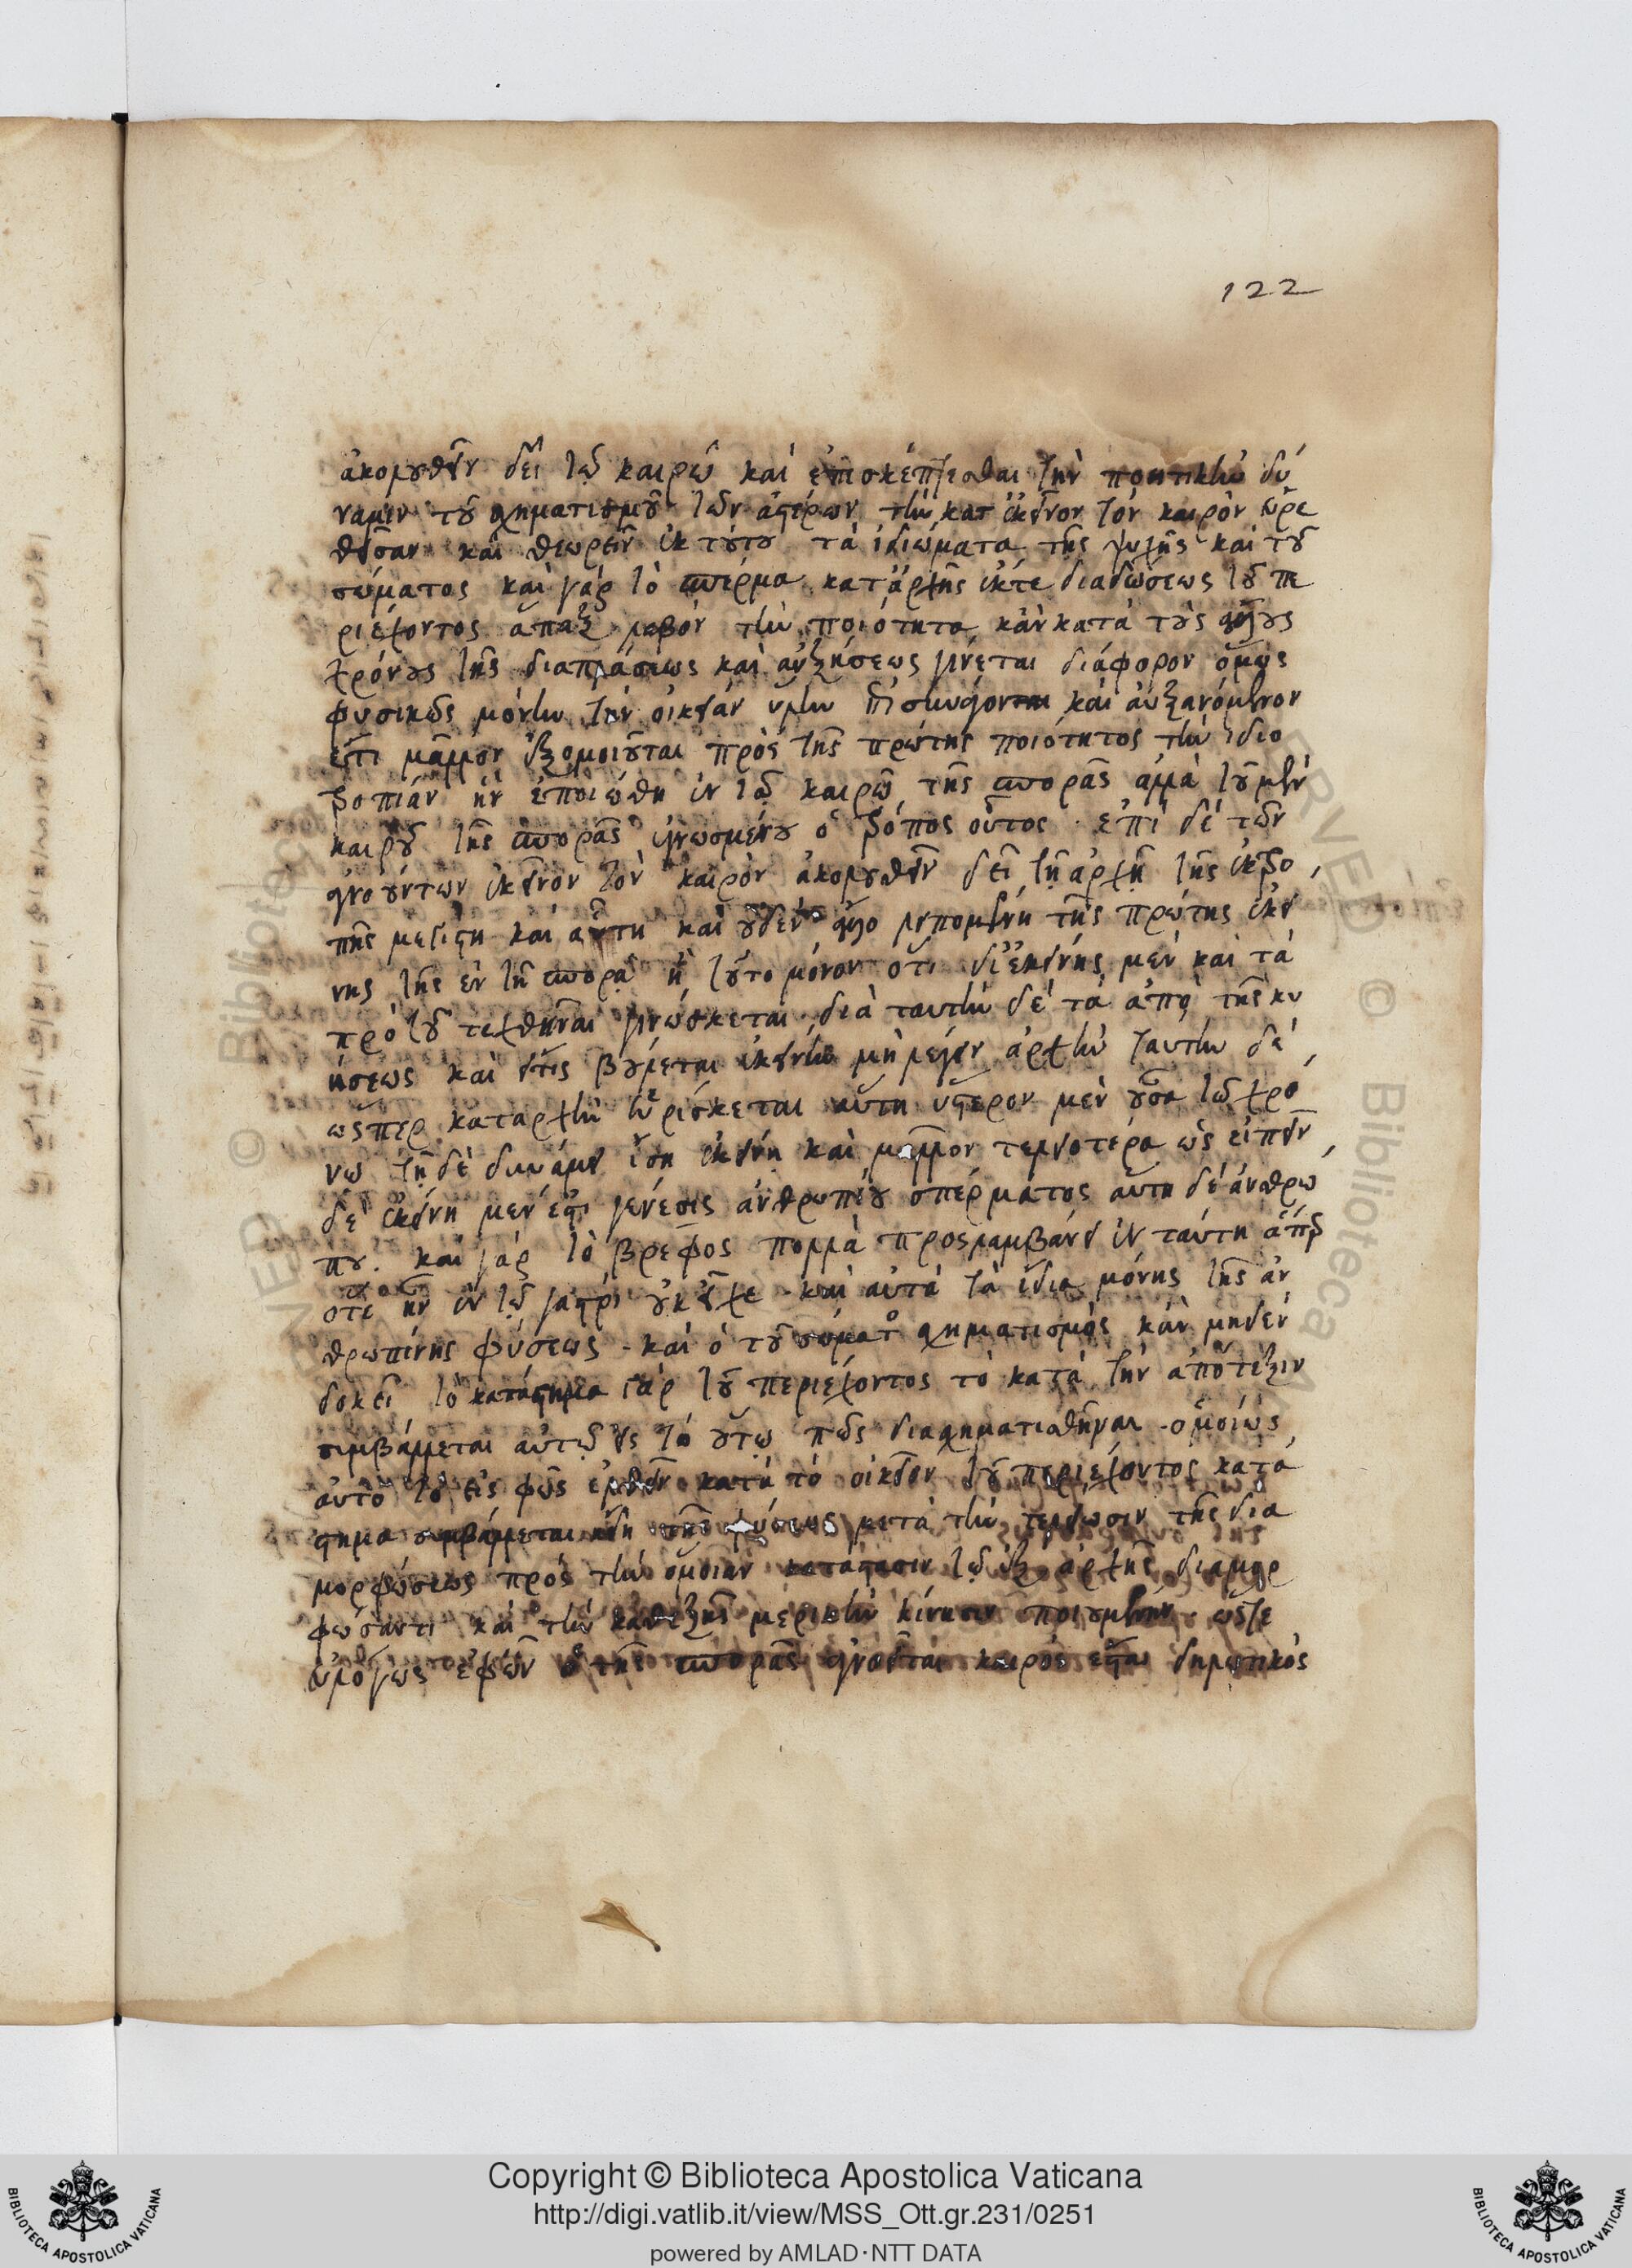 122
ἀκολουθεῖν δεῖ τῷ καιρῷ καὶ ἐπισκέπτεσθαι τὴν ποιητικὴν δύ
ναμιν τοῦ σχηματισμοῦ τῶν ἀστέρων τὴν κατ' ἐκεῖνον τὸν καιρὸν εὑρε
θεῖσαν καὶ θεωρεῖν ἐκ τούτου τὰ ἰδιώματα τῆς ψυχῆς καὶ τοῦ
σώματος καὶ γὰρ τὸ σπέρμα κατ' ἀρχῆς ἔκτε διαδώσεως τοῦ πε
ριέχοντος ἅπαξ λαβὸν τὴν ποιότητα κἂν κατὰ τοὺς ἄλλους
χρόνους τῆς διαπλάσεως καὶ αὐξήσεως γίνεται διάφορον ὅμως
φυσικῶς μόνην τὴν οἰκείαν ὕλην ἐπισυνάγον καὶ αὐξανόμενον
ἔτι μᾶλλον ἐξομοιοῦται πρὸς τῆς πρώτης ποιότητος τὴν ἰδιο
τροπίαν ἣν ἐποιώθη ἐν τῷ καιρῷ τῆς σπορᾶς ἀλλὰ τοῦ μὲν
καιροῦ τῆς σπορᾶς ἐγνωσμένου ὁ τρόπος οὗτος. ἐπὶ δὲ τῶν
ἀγνοούντων ἐκεῖνον τὸν καιρὸν ἀκολουθεῖν δεῖ τῇ ἀρχῇ τῆς ἐκτρο
πῆς μεγίστη καὶ αὕτη καὶ οὐδὲν ἄλλο λειπομένη τῆς πρώτης ἐκεί
νης τῆς ἐν τῇ σπορᾷ ἢ τοῦτο μόνον ὅτι δι' ἐκείνης μὲν καὶ τὰ
πρὸ τοῦ τεχθῆναι γινώσκεται. διὰ ταύτην δὲ τὰ ἀπὸ τῆς κυ
ήσεως καὶ εἴ τις βούλεται ἐκείνην μὴ λέγειν ἀρχὴν ταύτην δὲ
ὥσπερ καταρχὴν εὑρίσκεται αὕτη ὕστερον μὲν οὖσα τῷ χρό
νω τῇ δὲ δυνάμει ἴση ἐκείνη καὶ μᾶλλον τελειοτέρα ὡς εἰπεῖν
δὲ ἐκείνη μέν ἐστι γένεσις ἀνθρωπίνου σπέρματος αὕτη δὲ ἀνθρώ
που. καὶ γὰρ τὸ βρέφος πολλὰ προσλαμβάνει ἐν ταύτῃ ἅπερ
ὅτε ἦν ἐν τῷ γαστρὶ οὐκ εἶχε καὶ αὐτὰ τὰ ἴδια μόνης τῆς ἀν
θρωπίνης φύσεως. καὶ ὁ τοῦ σώματος σχηματισμὸς κἂν μηδὲν
δοκεῖ τὸ κατάστημα γὰρ τοῦ περιέχοντος τὸ κατὰ τὴν ἀπότεξιν
συμβάλλεται αὐτῷ εἰς τὸ οὕτω πῶς διασχηματισθῆναι. ὁμοίως
αὐτὸ τὸ εἰς φῶς ἐλθεῖν κατὰ τὸ οἰκεῖον τοῦ περιέχοντος κατά
στημα συμβάλλεται ἤδη τῆς φύσεως μετὰ τὴν τελείωσιν τῆς δια
μορφώσεως πρὸς τὴν ὁμοίαν κατάστασιν τῷ ἐξ ἀρχῆς διαμορ
φώσαντι καὶ τὴν καθεξῆς μερικὴν κίνησιν ποιουμένην. ὥστε
εὐλόγως ἐφ' ὧν ὁ τῆς σπορᾶς ἀγνοεῖται καιρὸς ἔσται δηλωτικὸς